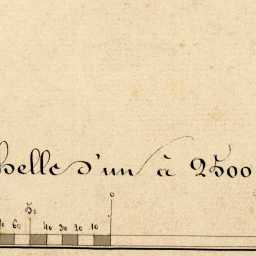 helle d'un à 2500
0
50
60 40 30 20 10